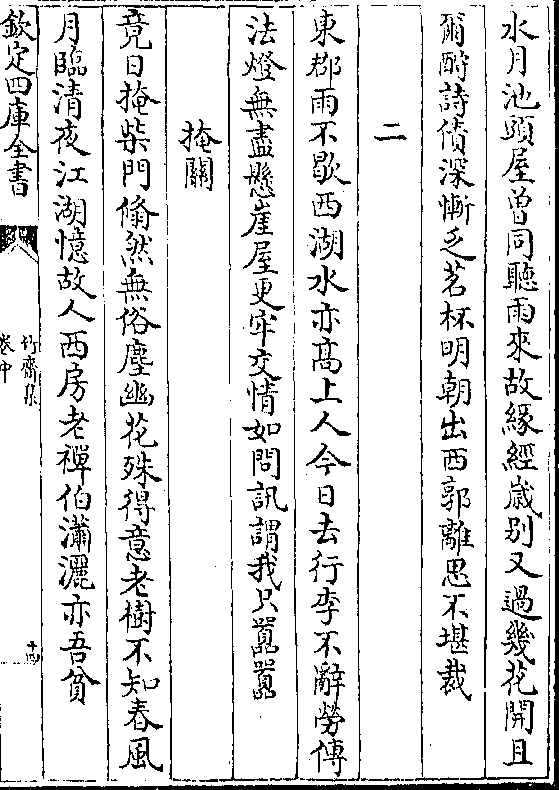 水月池頭屋曽同聽雨來故緣經歲别又過幾花開且
爾酧詩債深慚乏茗杯明朝出西郭離思不堪裁
二
東郡雨不歇西湖水亦高上人今日去行李不辭勞傳
法燈無盡懸崖屋更牢交情如問訊謂我只囂囂
掩關
竟日掩柴門翛然無俗塵幽花殊得意老樹不知春風
月臨清夜江湖憶故人西房老禪伯瀟灑亦吾貧
欽定四庫全書
竹齋集
卷中
十四